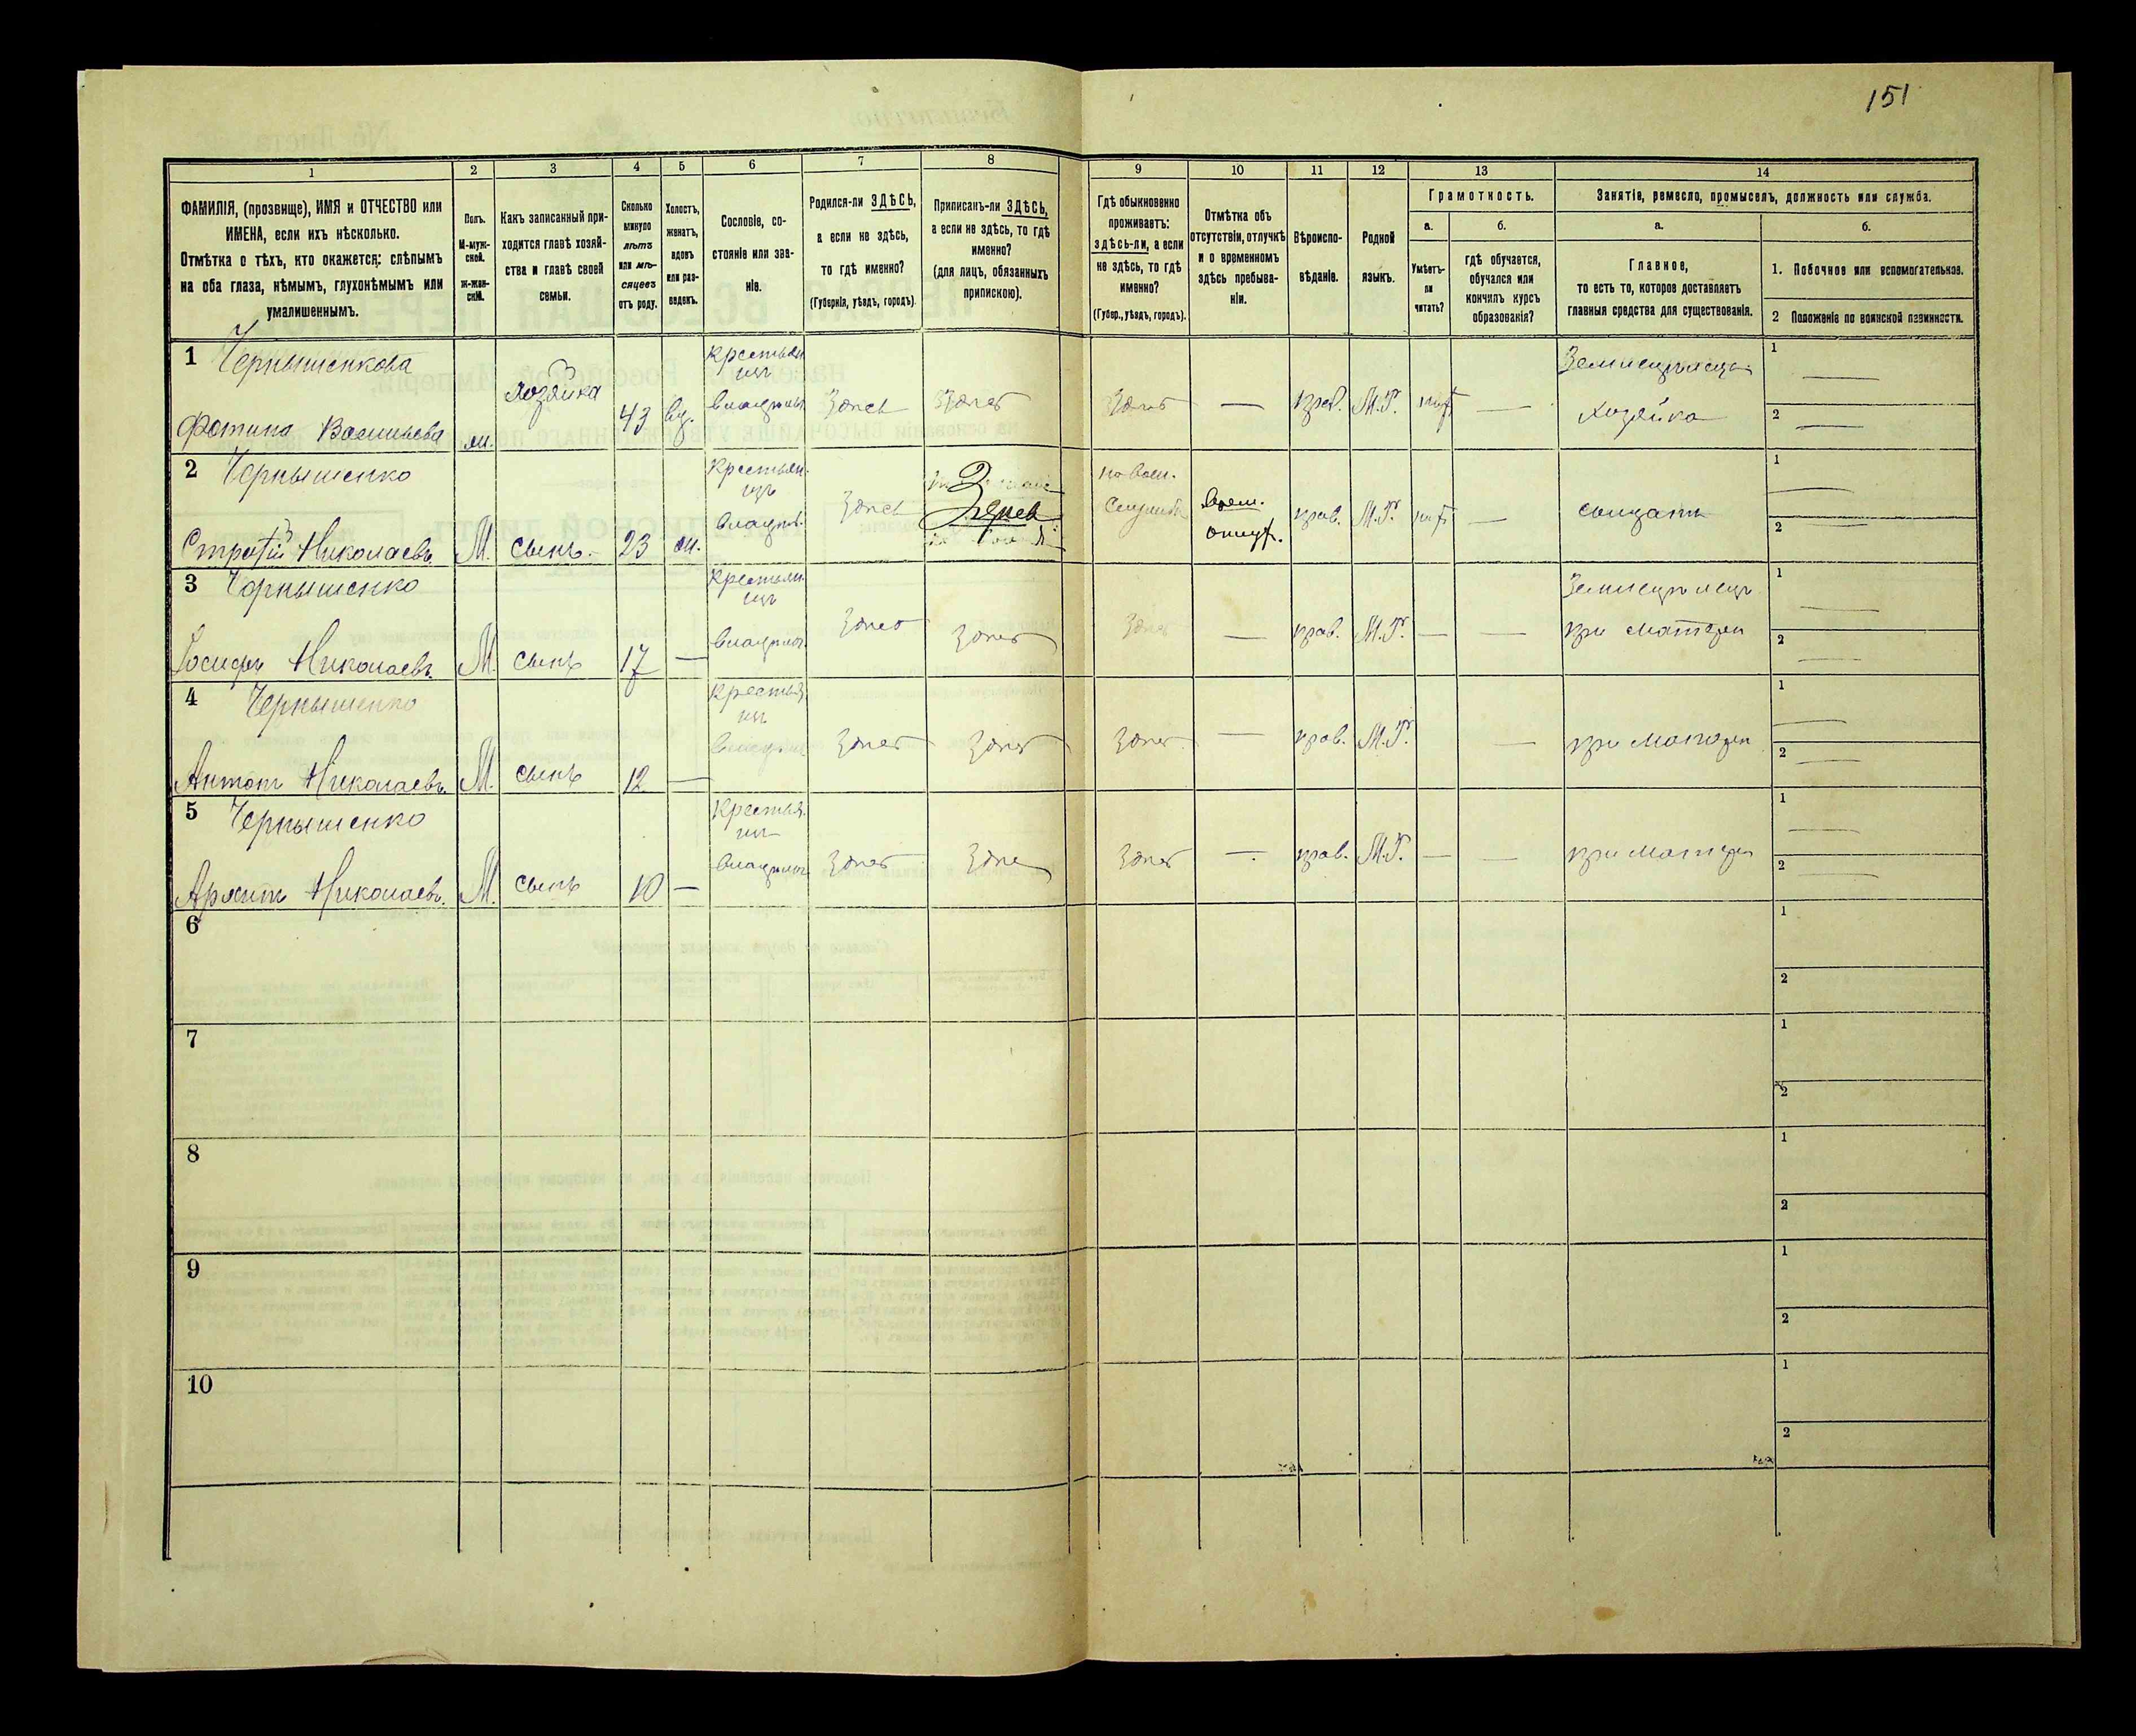 151
1
2
3
4
5
6
7
8
9
10
11
12
13
14
ФАМИЛІЯ, (прозвище), ИМЯ и ОТЧЕСТВО или
ИМЕНА, если ихъ нѣсколько.
Отмѣтка о тѣхъ, кто окажется: слѣпымъ
на оба глаза, нѣмымъ, глухонѣмымъ или
умалишеннымъ.
Полъ.
М-муж-
ской.
Ж-жен-
скій.
Какъ записанный при-
ходится главѣ хозяй-
ства и главѣ своей
семьи.
Сколько
минуло
лѣтъ
или мѣ-
сяцевъ
отъ роду.
Холостъ,
женатъ,
вдовъ
или раз-
веденъ.
Сословіе, со-
стояніе или зва-
ніе.
Родился-ли ЗДѢСЬ,
а если не здѣсь,
то гдѣ именно?
(Губернія, уѣздъ, городъ).
Приписанъ-ли ЗДѢСЬ,
а если не здѣсь, то гдѣ
именно?
(для лицъ, обязанныхъ
припискою).
Гдѣ обыкновенно
проживаетъ:
здѣсь-ли, а если
не здѣсь, то гдѣ
именно?
(Губер., уѣздъ, городъ).
Отмѣтка объ
отсутствіи, отлучкѣ
и о временномъ
здѣсь пребыва-
ніи.
Вѣроиспо-
вѣданіе.
Родной
языкъ.
Грамотность.
а.
Умѣетъ-
ли
читать?
б.
гдѣ обучается,
обучался или
кончилъ курсъ
образованія?
Занятіе, ремесло, промыселъ, должность или служба.
а.
Главное,
то есть то, которое доставляетъ
главныя средства для существованія.
б.
1. Побочное или вспомогательное.
2 Положеніе по воинской повинности.
1 Чернышенкова
Фотина Васильева
хозяйка 43 вд.
Здесь Здесь Здесь — прав. М.Р. —
Хозяйка
1
2
2 Чернышенко
Николаевъ М. сынъ. 23
Здесь
прав. М.Р. —
солдатъ
1
2
3 Чернышенко
Іосифъ Николаевъ М. сынъ 17 —
Здесь Здесь Здесь — прав. М.Р. — —
при матери
1
2
4 Чернышенко
Антонъ Николаевъ. М. сынъ 12 —
Здесь Здесь Здесь — прав. М.Р. —
при матери
1
2
5 Чернышенко
Николаевъ. М. сынъ 10 —
Здесь Здесь Здесь — прав. М.Р. — —
при матери
1
2
6
1
2
7
1
2
8
1
2
9
1
2
10
1
2